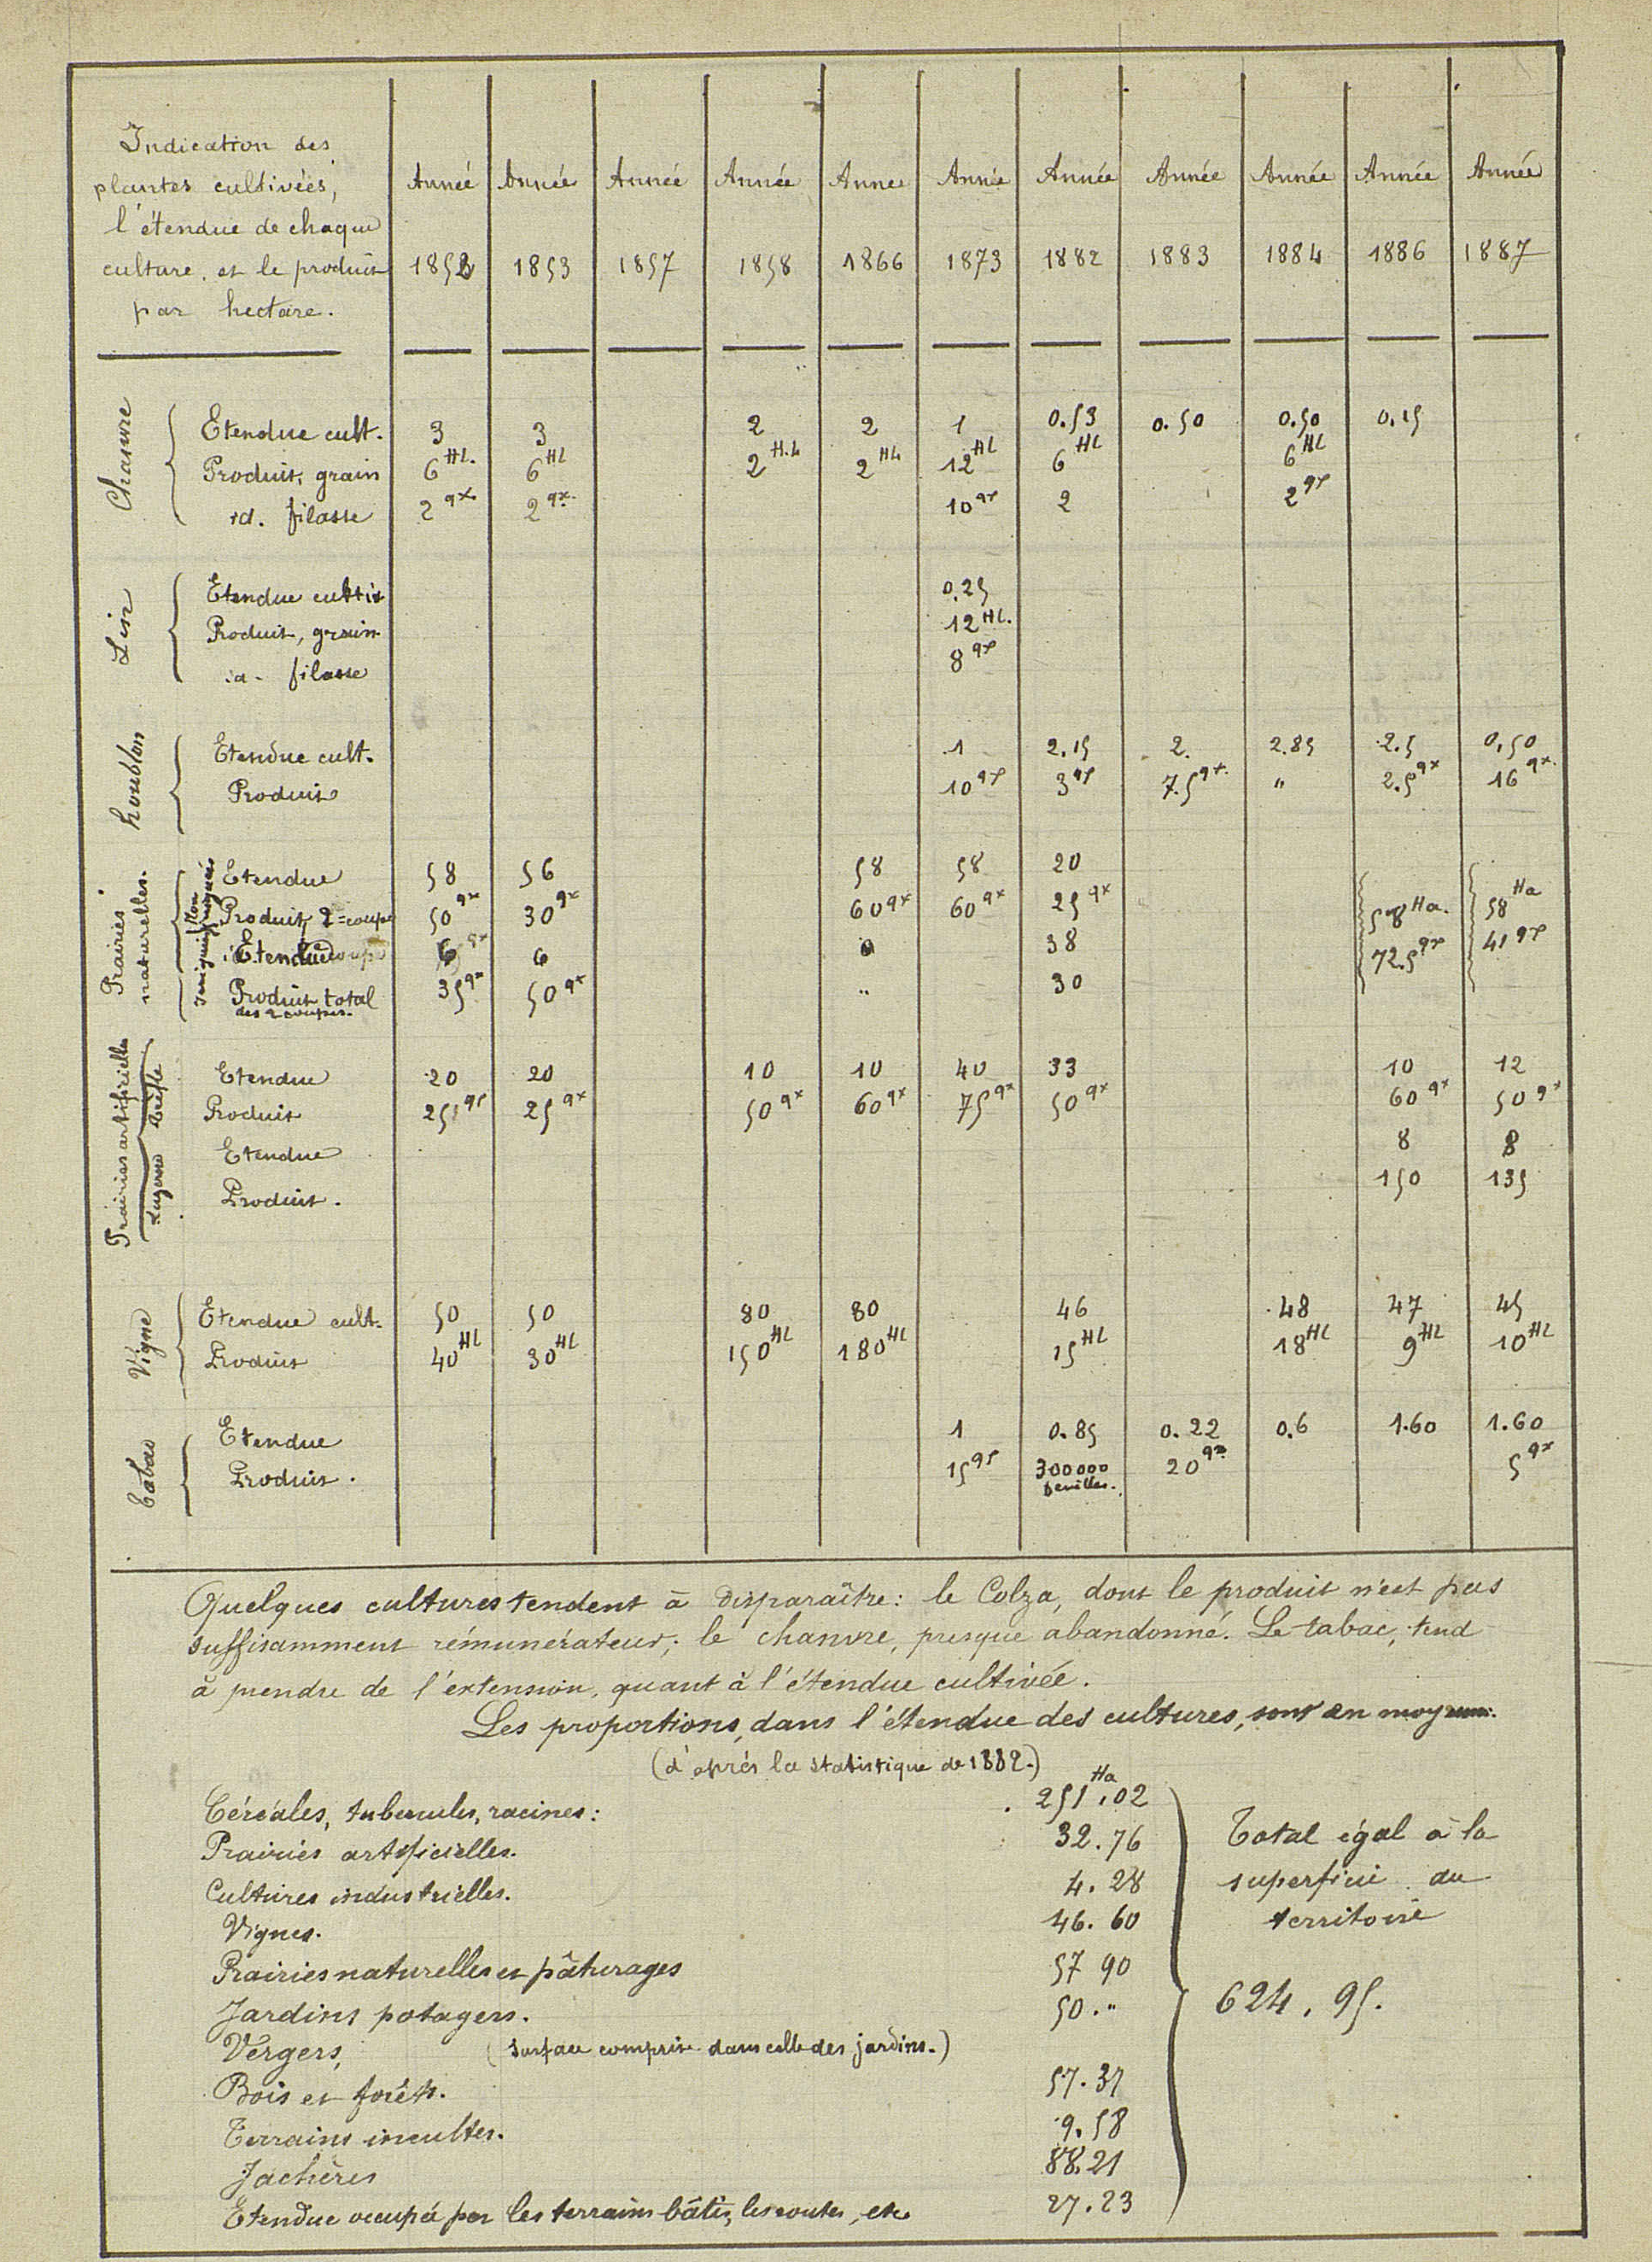 Indication des
plantes cultivées,
l'étendue de chaque
culture, et le produit
par hectare.
Année Année Année Année Année Année Année Année Année Année Année
1852 1853 1857 1858 1866 1873 1882 1883 1884 1886 1887
Chanvre
Etendue cult. 3 3 2 2 1 0.53 0.50 0.50 0.15
Produit, grain 6 HL. 6 HL 2 H.L 2 HL 12 HL 6 HL 6 HL
id. filasse 2 qx. 2 qx. 10 qx 2 2 qx
Lin
Etendue cultiv 0.25
Produit, grain 12 HL.
id. filasse 8 qx
houblon
Etendue cult. 1 2.15 2. 2.85 2.5 0.50
Produit 10 qx 3 qx 7.5 qx. " 2.5 qx 16 qx.
Prairies naturelles.
Non irriguées
Etendue 58 56 58 58 20
Produit, 2 = coupe 50 qx 30 qx 60 qx 60 qx 25 qx 58 Ha. 58 Ha
Irriguées
Etendue 6 6 38 72.5 qx 41 qx
Produit total 35 qx 50 qx " 30
des 2 coupes.
Prairies artificielles
Trèfle
Etendue 20 20 10 10 40 33 10 12
Produit 25 qx 25 qx 50 qx 60 qx 75 qx 50 qx 60 qx 50 qx
Luzerne
Etendue 8 8
Produit. 150 135
Vigne
Etendue cult. 50 50 80 80 46 48 47 45
Produit 40 HL 30 HL 150 HL 180 HL 15 HL 18 HL 9 HL 10 HL
Tabac
Etendue 1 0.85 0.22 0.6 1.60 1.60
Produit. 15 qx 300000 20 qx 5 qx
feuilles.
Quelques cultures tendent à disparaître: le Colza, dont le produit n'est pas
suffisamment rémunérateur; le chanvre, presque abandonné. Le tabac, tend
à prendre de l'extension, quant à l'étendue cultivée.
Les proportions, dans l'étendue des cultures, sont en moyenne.
(d'après la statistique de 1882.)
Céréales, tubercules, racines: 251 Ha,02
Prairies artificielles. 32.76
Cultures industrielles. 4.28
Vignes. 46.60
Prairies naturelles et pâturages 57 90
Jardins potagers. 50."
Vergers, (surface comprise dans celle des jardins.)
Bois et forêts. 57.37
Terrains incultes. 9.58
Jachères 88.21
Etendue occupée par les terrains bâtis, les routes, etc. 27.23
Total égal à la
superficie du
territoire
624.95.